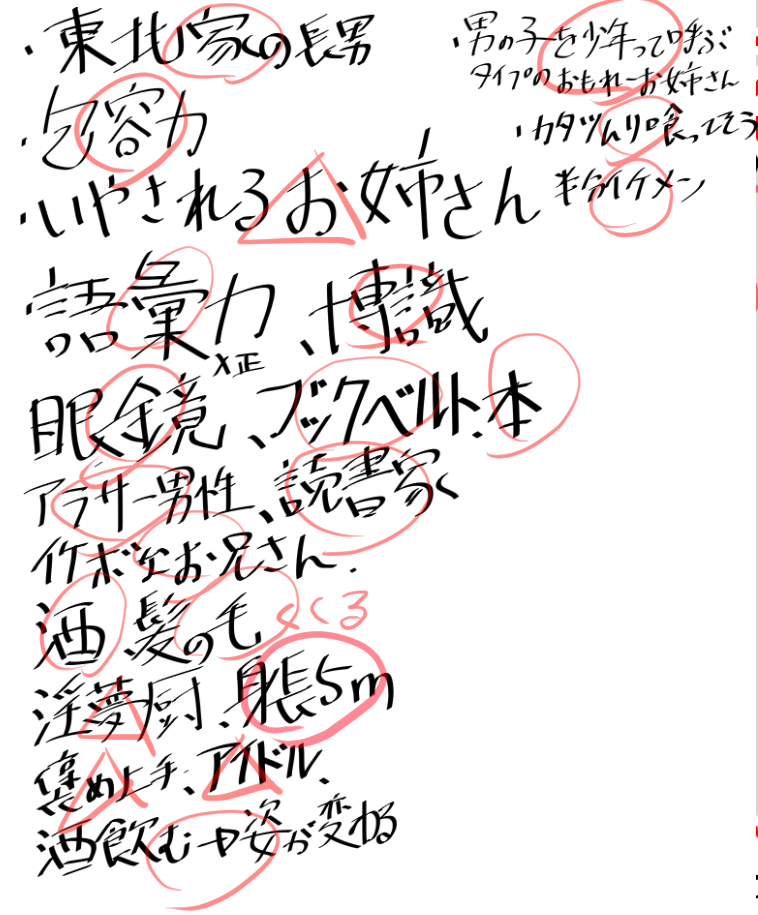 ・東北家の長男
・包容力
・いやされるお姉さん
・男の子を少年って呼ぶ
タイプのおもれーお姉さん
・カタツムリ喰ってそう
半分イケメン
語彙力、博識
メ正
眼鏡、ブックベルト、本
アラサー男性、読書家
イケボなお兄さん.
酒 髪の毛 くくる
淫夢厨、身長5m
褒め上手、アイドル、
酒飲むや姿が変わる